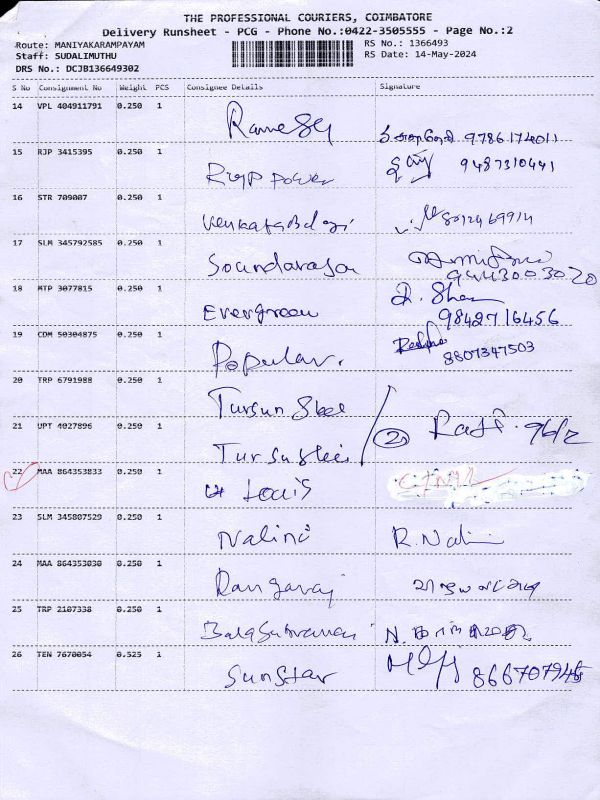 THE PROFESSIONAL COURIERS, COIMBATORE
Delivery Runsheet - PCG - Phone No.:0422-3505555 - Page No.:2
Route: MANIYAKARAMPAYAM
Staff: SUDALIMUTHU
DRS No.: DCJB136649302
RS No.: 1366493
RS Date: 14-May-2024
S No Consignment No Weight PCS Consignee Details Signature
14 VPL 404911791 0.250 1 Ramesh 9786174011
15 RJP 3415395 0.250 1 power 9487310441
16 STR 709007 0.250 1 Venkatabalaji 8012469914
17 SLM 345792585 0.250 1 Soundararajan 9443003020
18 MTP 3077815 0.250 1 Evergreen 9842716456
19 CDM 50304875 0.250 1 Popular. 8807347503
20 TRP 6791988 0.250 1
21 UPT 4027896 0.250 1 2
22 MAA 864353833 0.250 1 Louis
23 SLM 345807529 0.250 1 Nalini R. Nalini
24 MAA 864353030 0.250 1 Rangaraj
25 TRP 2107338 0.250 1 Balasubramani
26 TEN 7670054 0.525 1 Sunstar